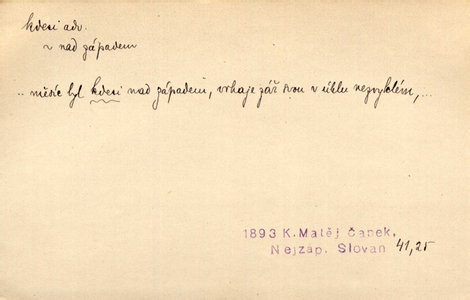 kdesi adv.
~ nad západem
.. měsíc byl kdesi nad západem, vrhaje zář svou v úhlu nezvyklém, ...
1893 K. Matěj Čapek,
Nejzáp. Slovan 41,25